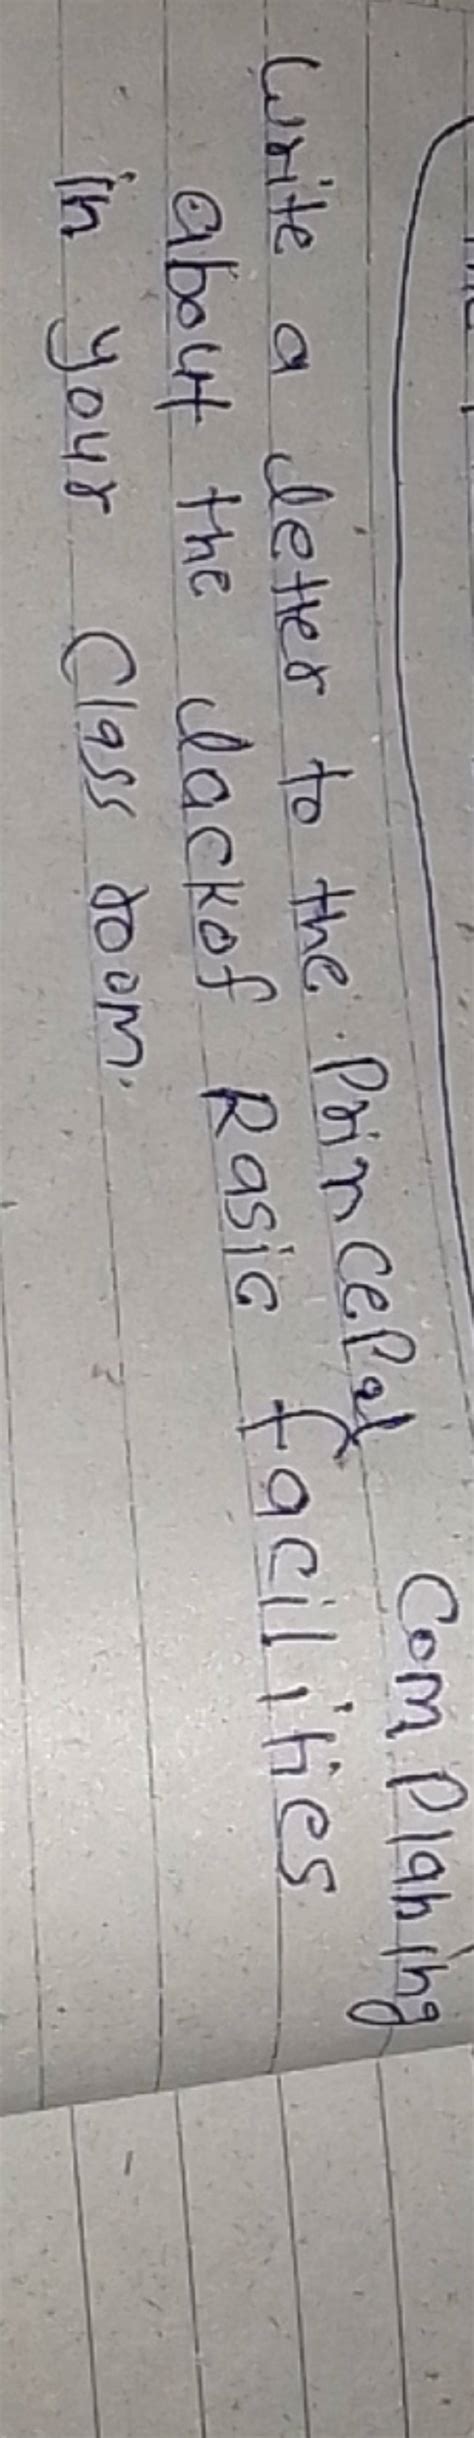 Write a letter to the Princepal Complaning
about the lackof Rasic facilities
in your Class room.